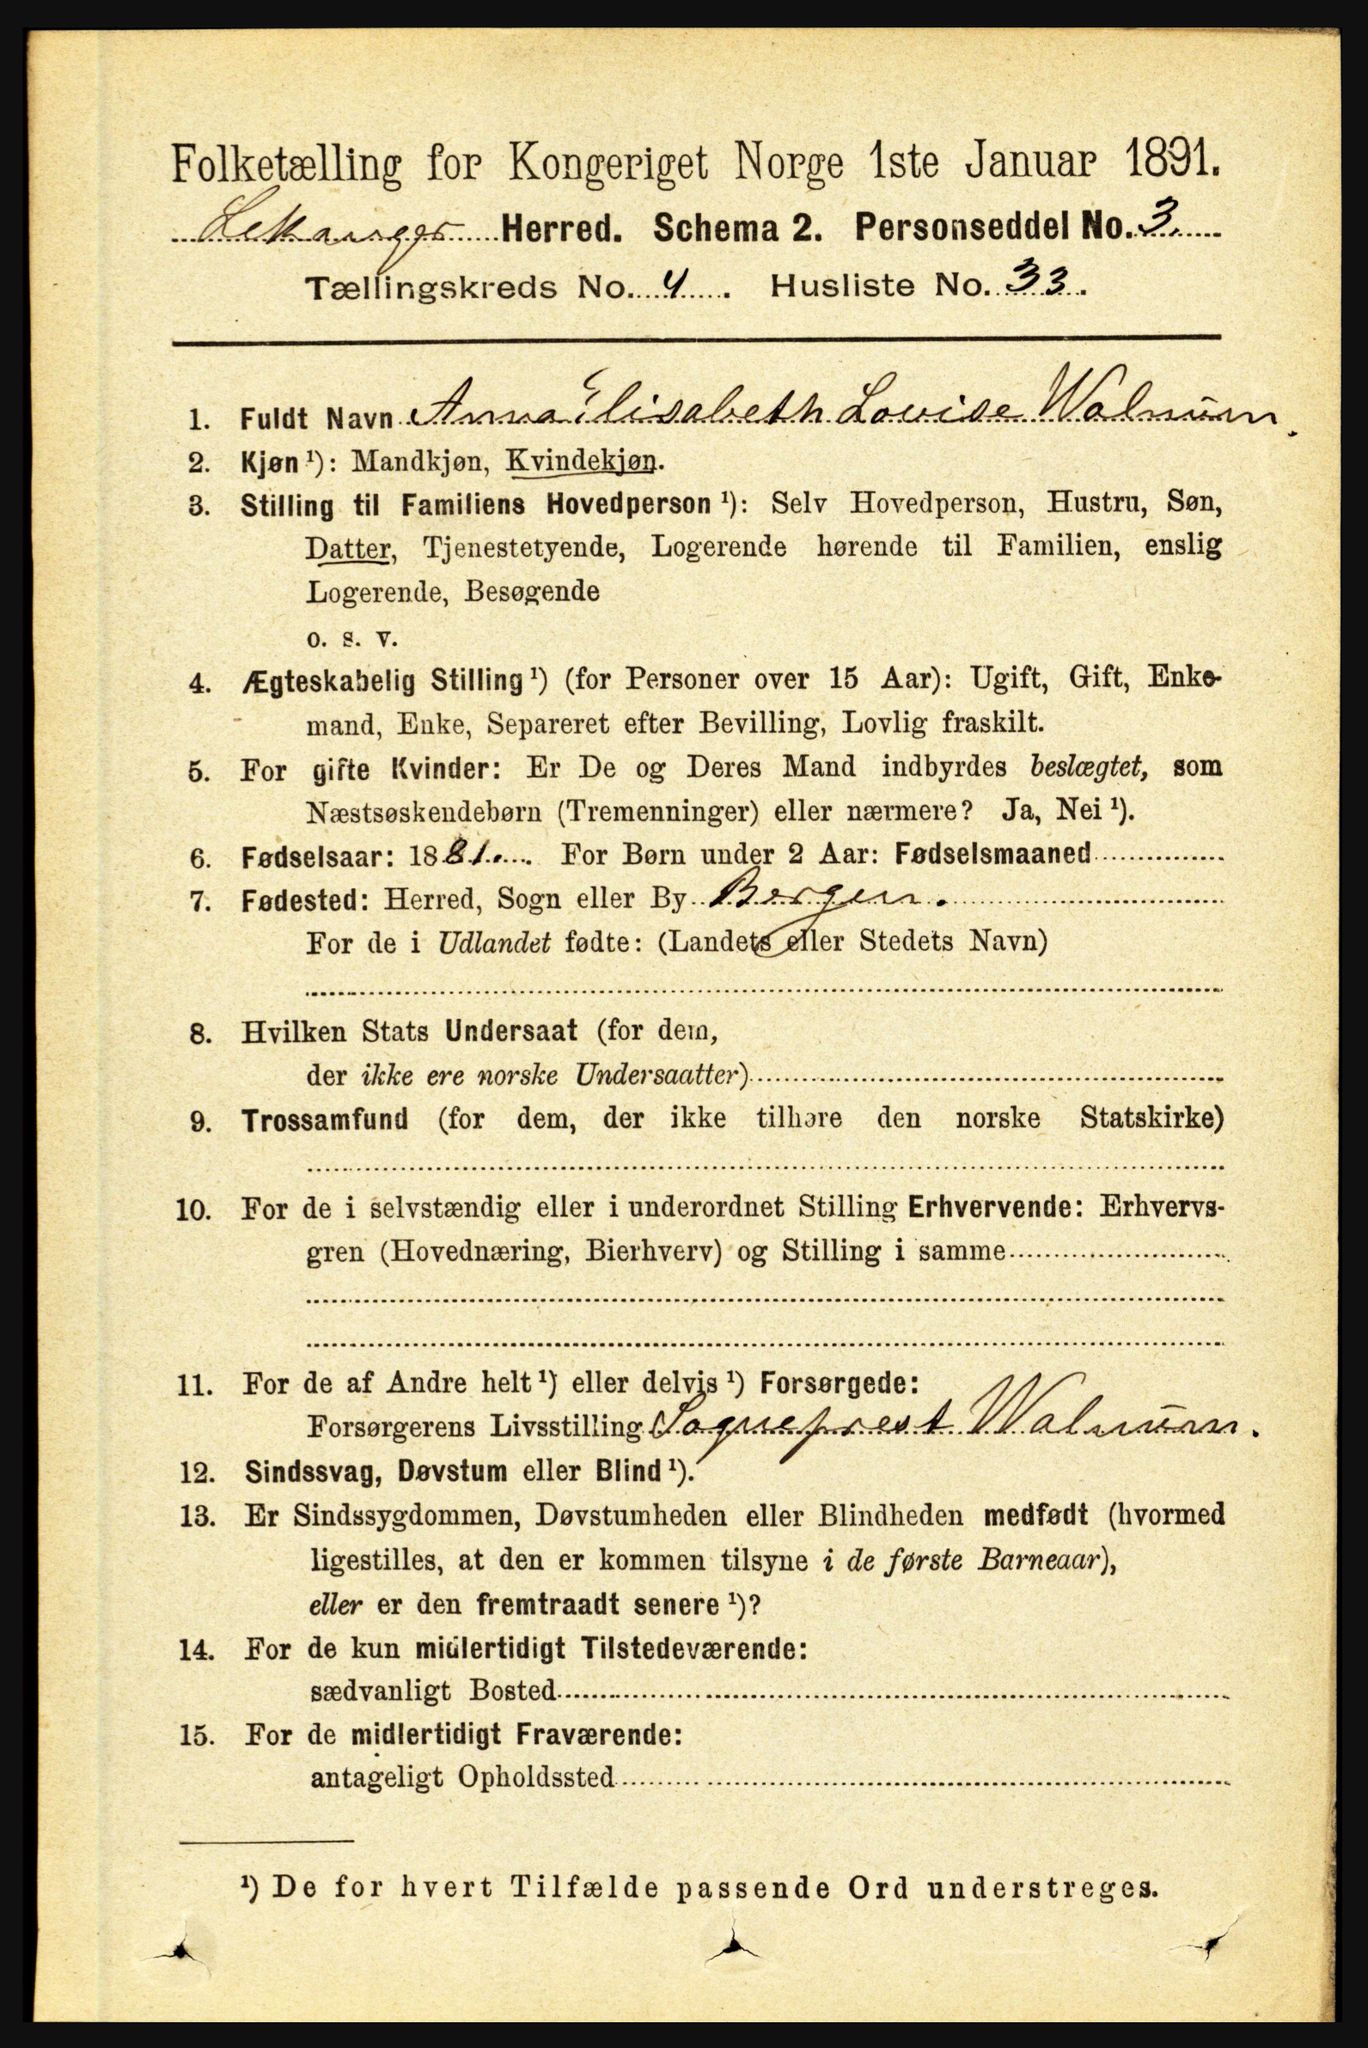 Folketælling for Kongeriget Norge 1ste Januar 1891.
Lekanger Herred. Schema 2. Personseddel No. 3.
Tællingskreds No. 4. Husliste No. 33.
1. Fuldt Navn Anna Elisabeth Lovise Walnum.
2. Kjøn ¹): Mandkjøn, Kvindekjøn.
3. Stilling til Familiens Hovedperson ¹): Selv Hovedperson, Hustru, Søn,
Datter, Tjenestetyende, Logerende hørende til Familien, enslig
Logerende, Besøgende
o. s. v.
4. Ægteskabelig Stilling ¹) (for Personer over 15 Aar): Ugift, Gift, Enke-
mand, Enke, Separeret efter Bevilling, Lovlig fraskilt.
5. For gifte Kvinder: Er De og Deres Mand indbyrdes beslægtet, som
Næstsøskendebørn (Tremenninger) eller nærmere? Ja, Nei ¹).
6. Fødselsaar: 1881. For Børn under 2 Aar: Fødselsmaaned
7. Fødested: Herred, Sogn eller By Bergen.
For de i Udlandet fødte: (Landets eller Stedets Navn)
8. Hvilken Stats Undersaat (for dem,
der ikke ere norske Undersaatter)
9. Trossamfund (for dem, der ikke tilhøre den norske Statskirke)
10. For de i selvstændig eller i underordnet Stilling Erhvervende: Erhvervs-
gren (Hovednæring, Bierhverv) og Stilling i samme
11. For de af Andre helt ¹) eller delvis ¹) Forsørgede:
Forsørgerens Livsstilling Sogneprest Walnum.
12. Sindssvag, Døvstum eller Blind ¹).
13. Er Sindssygdommen, Døvstumheden eller Blindheden medfødt (hvormed
ligestilles, at den er kommen tilsyne i de første Barneaar),
eller er den fremtraadt senere ¹)?
14. For de kun midlertidigt Tilstedeværende:
sædvanligt Bosted
15. For de midlertidigt Fraværende:
antageligt Opholdssted
¹) De for hvert Tilfælde passende Ord understreges.